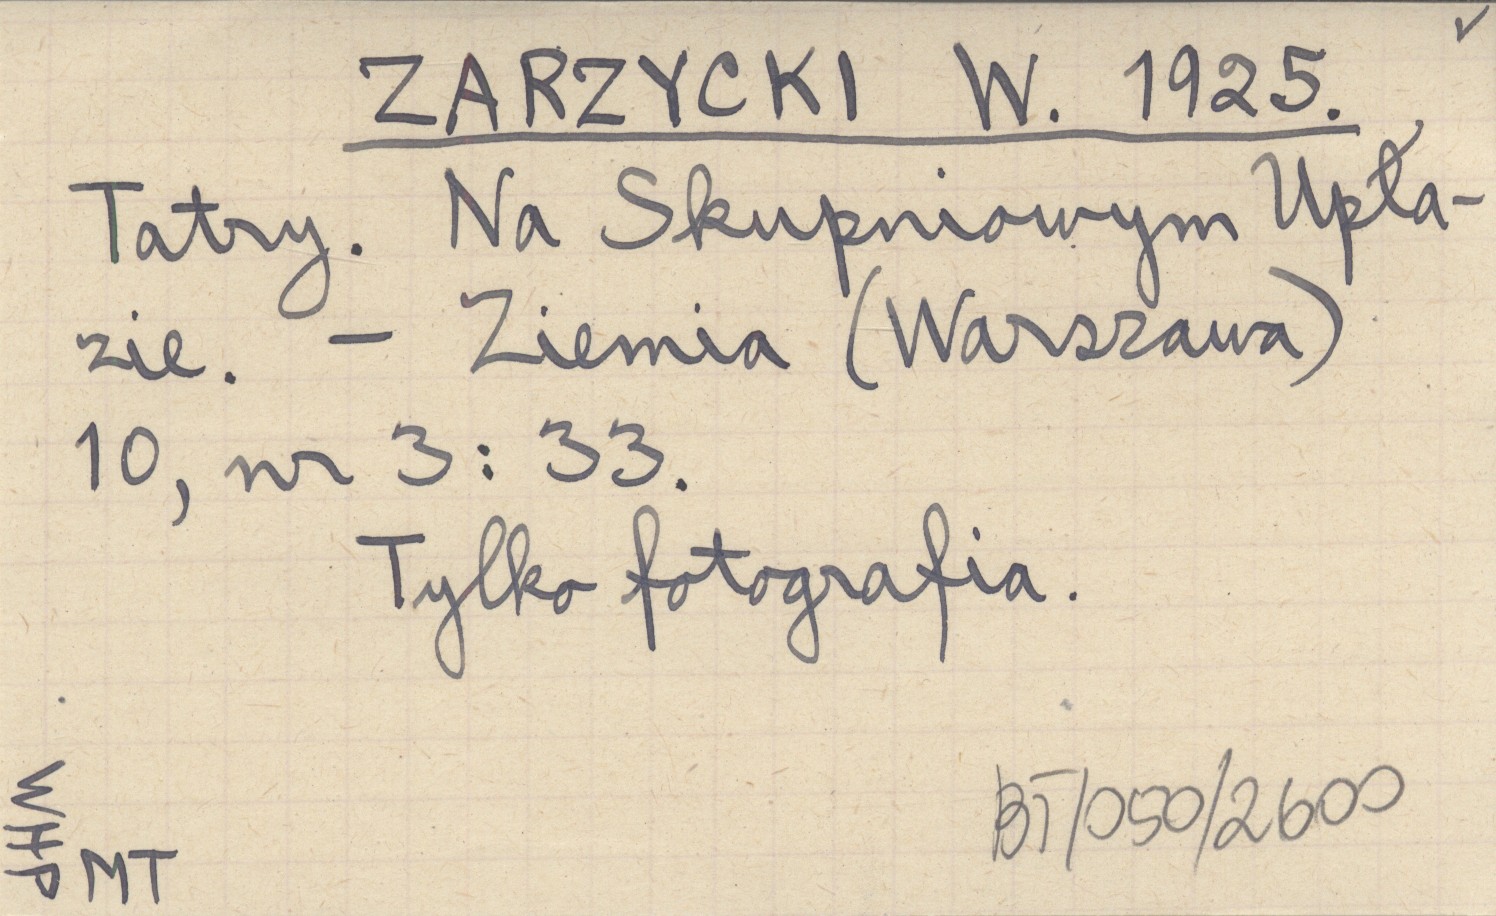 ZARZYCKI W. 1925.
Tatry. Na Skupniowym Upła-
zie. – Ziemia (Warszawa)
10, nr 3: 33.
Tylko fotografia.
BT/050/2600
WHP
MT